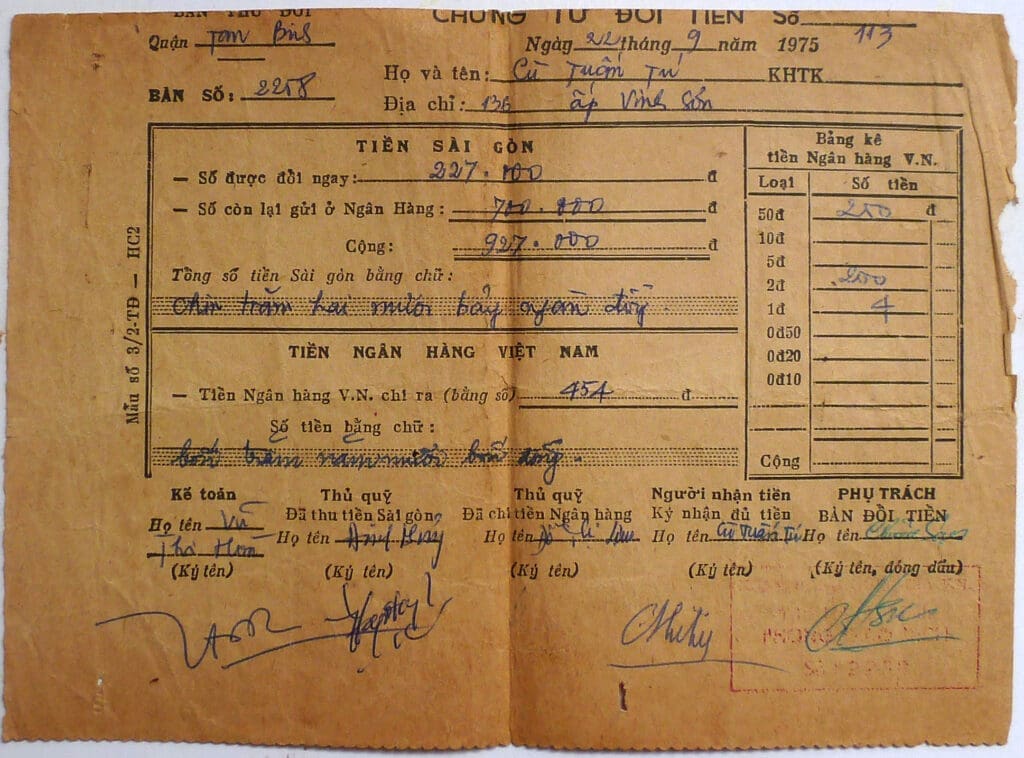 BÀN THU ĐỔI
CHỨNG TỪ ĐỔI TIỀN Số 113
Quận Tân Bình
Ngày 22 tháng 9 năm 1975
BÀN SỐ: 2258
Họ và tên: Cù Tuấn Tú KHTK
Địa chỉ: 136 ấp Vinh Sơn
Mẫu số 3/2-TĐ — HC2
TIỀN SÀI GÒN
— Số được đổi ngay: 227.000 đ
— Số còn lại gửi ở Ngân Hàng: 700.000 đ
Cộng: 927.000 đ
Tổng số tiền Sài gòn bằng chữ:
Chín trăm hai mươi bảy ngàn đồng.
TIỀN NGÂN HÀNG VIỆT NAM
— Tiền Ngân hàng V.N. chi ra (bằng số) 454 đ
Số tiền bằng chữ:
bốn trăm năm mươi bốn đồng.
Bảng kê
tiền Ngân hàng V.N.
Loại Số tiền
50đ 250 đ
10đ
5đ
2đ 200
1đ 4
0đ50
0đ20
0đ10
Cộng
Kế toán
Họ tên Vũ
Thị Hoà
(Ký tên)
Thủ quỹ
Đã thu tiền Sài gòn
Họ tên
(Ký tên)
Thủ quỹ
Đã chi tiền Ngân hàng
Họ tên
(Ký tên)
Người nhận tiền
Ký nhận đủ tiền
Họ tên Cù Tuấn Tú
(Ký tên)
PHỤ TRÁCH
BÀN ĐỔI TIỀN
Họ tên
(Ký tên, đóng dấu)